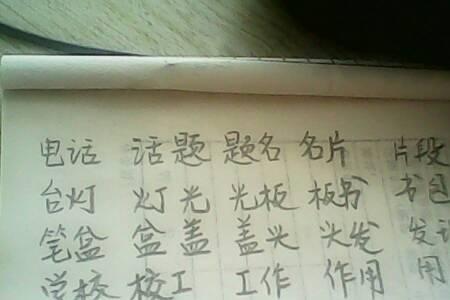 电话 话题 题名 名片 片段
台灯 灯光 光板 板书 书包
笔盆 盆盖 盖头 头发 发
学校 校工 工作 作用 用